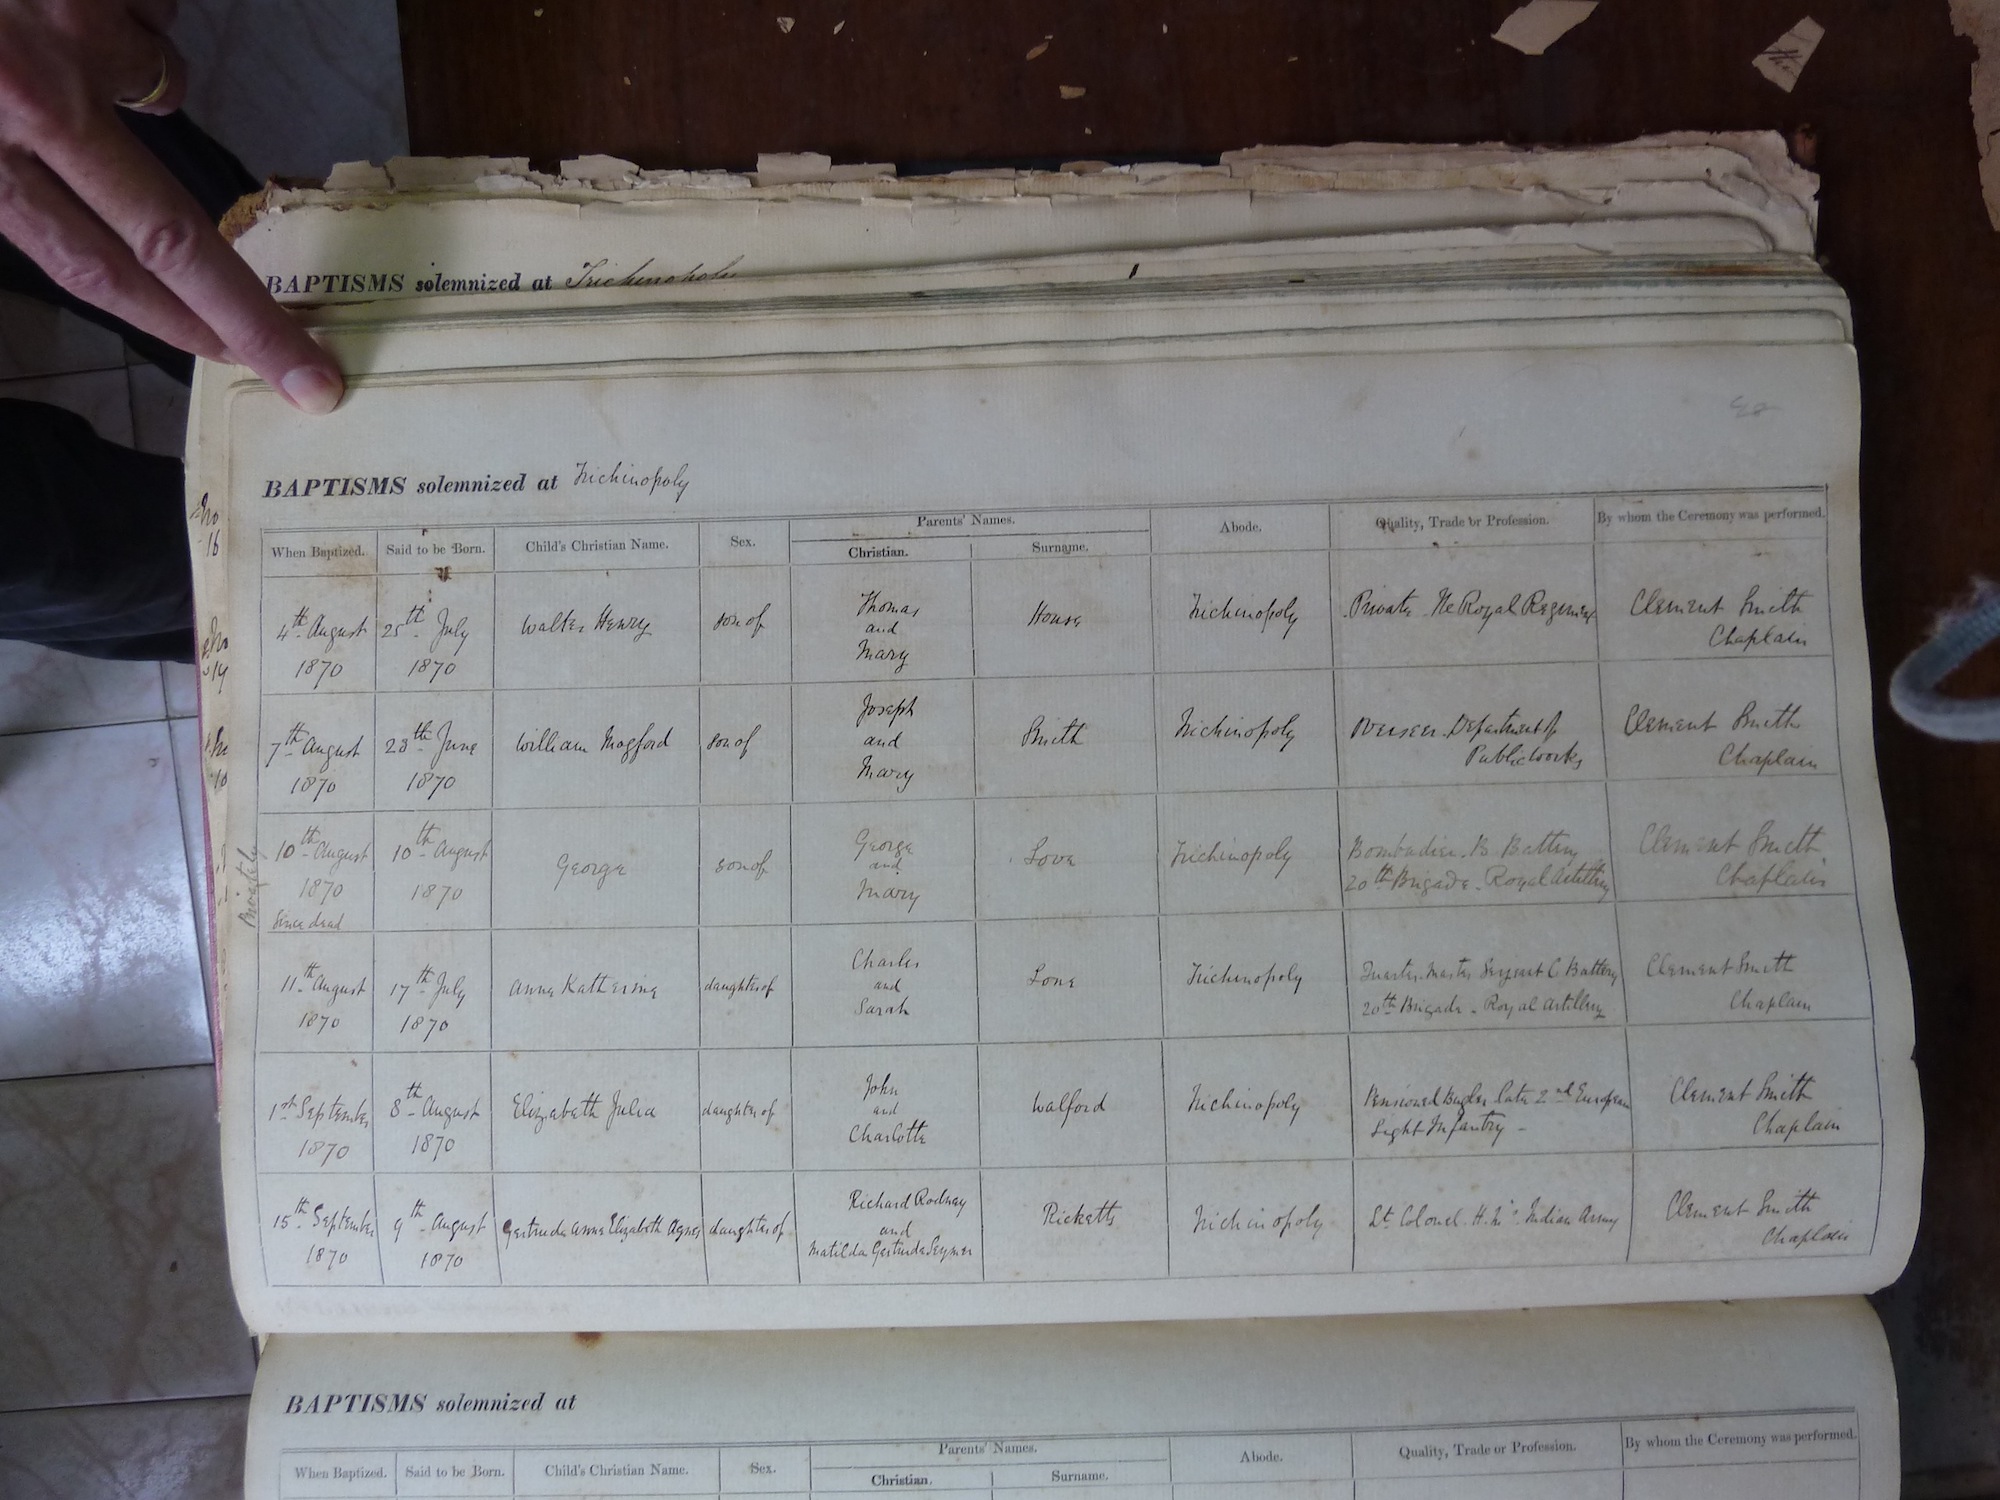 BAPTISMS solemnized at Trichinopoly
BAPTISMS solemnized at Trichinopoly
When Baptized. Said to be Born. Child's Christian Name. Sex. Parents' Names. Christian. Surname. Abode. Quality, Trade or Profession. By whom the Ceremony was performed.
4th August 1870 25th July 1870 Walter Henry son of Thomas and Mary House Trichinopoly Private The Royal Regiment Clement Smith Chaplain
7th August 1870 28th June 1870 William Mogford son of Joseph and Mary Smith Trichinopoly Overseer Department of Public Works Clement Smith Chaplain
Privately
10th August 1870 Since dead 10th August 1870 George son of George and Mary Love Trichinopoly Bombadier. B Battery 20th Brigade. Royal Artillery Clement Smith Chaplain
11th August 1870 17th July 1870 Anna Katherine daughter of Charles and Sarah Lone Trichinopoly Quarter Master Serjeant C Battery 20th Brigade. Royal Artillery Clement Smith Chaplain
1st September 1870 8th August 1870 Elizabeth Julia daughter of John and Charlotte Walford Trichinopoly Pensioned Bugler late 2nd European Light Infantry - Clement Smith Chaplain
15th September 1870 9th August 1870 Gertrude Anne Elizabeth Agnes daughter of Richard Rodney and Matilda Gertrude Seymer Ricketts Trichinopoly Lt Colonel. H. M's. Indian Army Clement Smith Chaplain
BAPTISMS solemnized at
When Baptized. Said to be Born. Child's Christian Name. Sex. Parents' Names. Christian. Surname. Abode. Quality, Trade or Profession. By whom the Ceremony was performed.